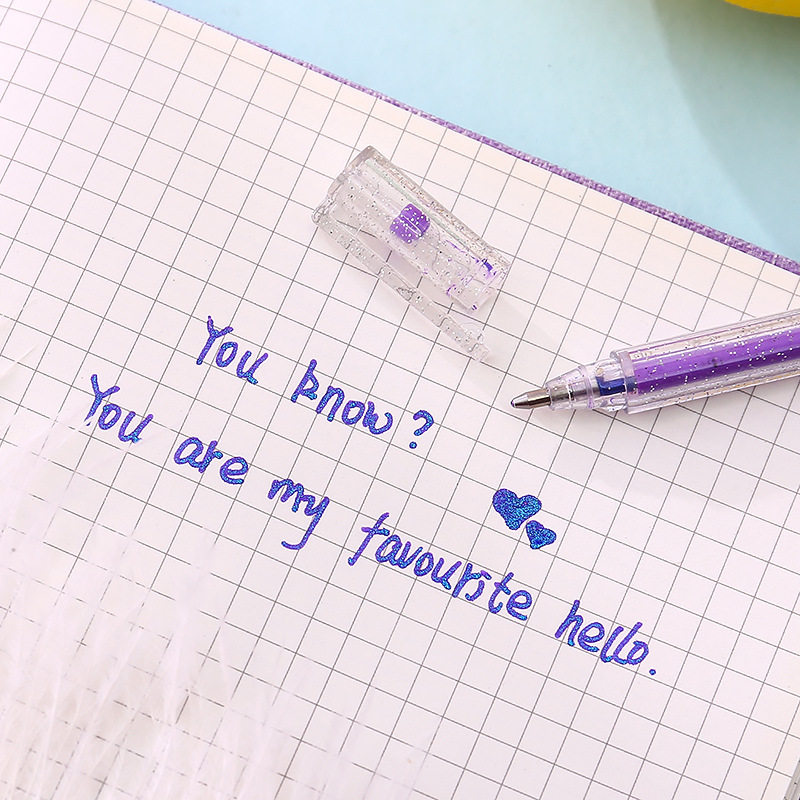 You know?
You are my favourite hello.